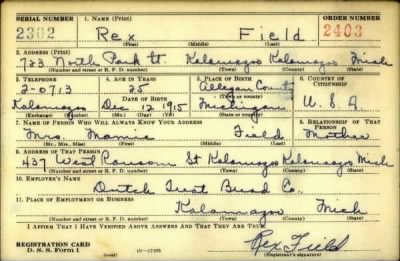 SERIAL NUMBER 1. NAME (Print) ORDER NUMBER
2302 Rex Field 2403
(First) (Middle) (Last)
2. ADDRESS (Print)
723 North Park St. Kalamazoo Kalamazoo Mich
(Number and street or R. F. D. number) (Town) (County) (State)
3. TELEPHONE 4. AGE IN YEARS 5. PLACE OF BIRTH 6. COUNTRY OF CITIZENSHIP
2-0713 25 Allegan County
DATE OF BIRTH
Kalamazoo Dec 12 1915 Michigan U. S. A
(Exchange) (Number) (Mo.) (Day) (Yr.) (State or country)
7. NAME OF PERSON WHO WILL ALWAYS KNOW YOUR ADDRESS 8. RELATIONSHIP OF THAT PERSON
Mrs. Mamie Field Mother
(Mr., Mrs., Miss) (First) (Middle) (Last)
9. ADDRESS OF THAT PERSON
437 West Ransom St Kalamazoo Kalamazoo Mich
(Number and street or R. F. D. number) (Town) (County) (State)
10. EMPLOYER'S NAME
Dutch Treat Bread Co.,
11. PLACE OF EMPLOYMENT OR BUSINESS
Kalamazoo Mich
(Number and street or R. F. D. number) (Town) (County) (State)
I AFFIRM THAT I HAVE VERIFIED ABOVE ANSWERS AND THAT THEY ARE TRUE.
REGISTRATION CARD
D. S. S. Form 1 16—17105 Rex Field
(Registrant's signature)